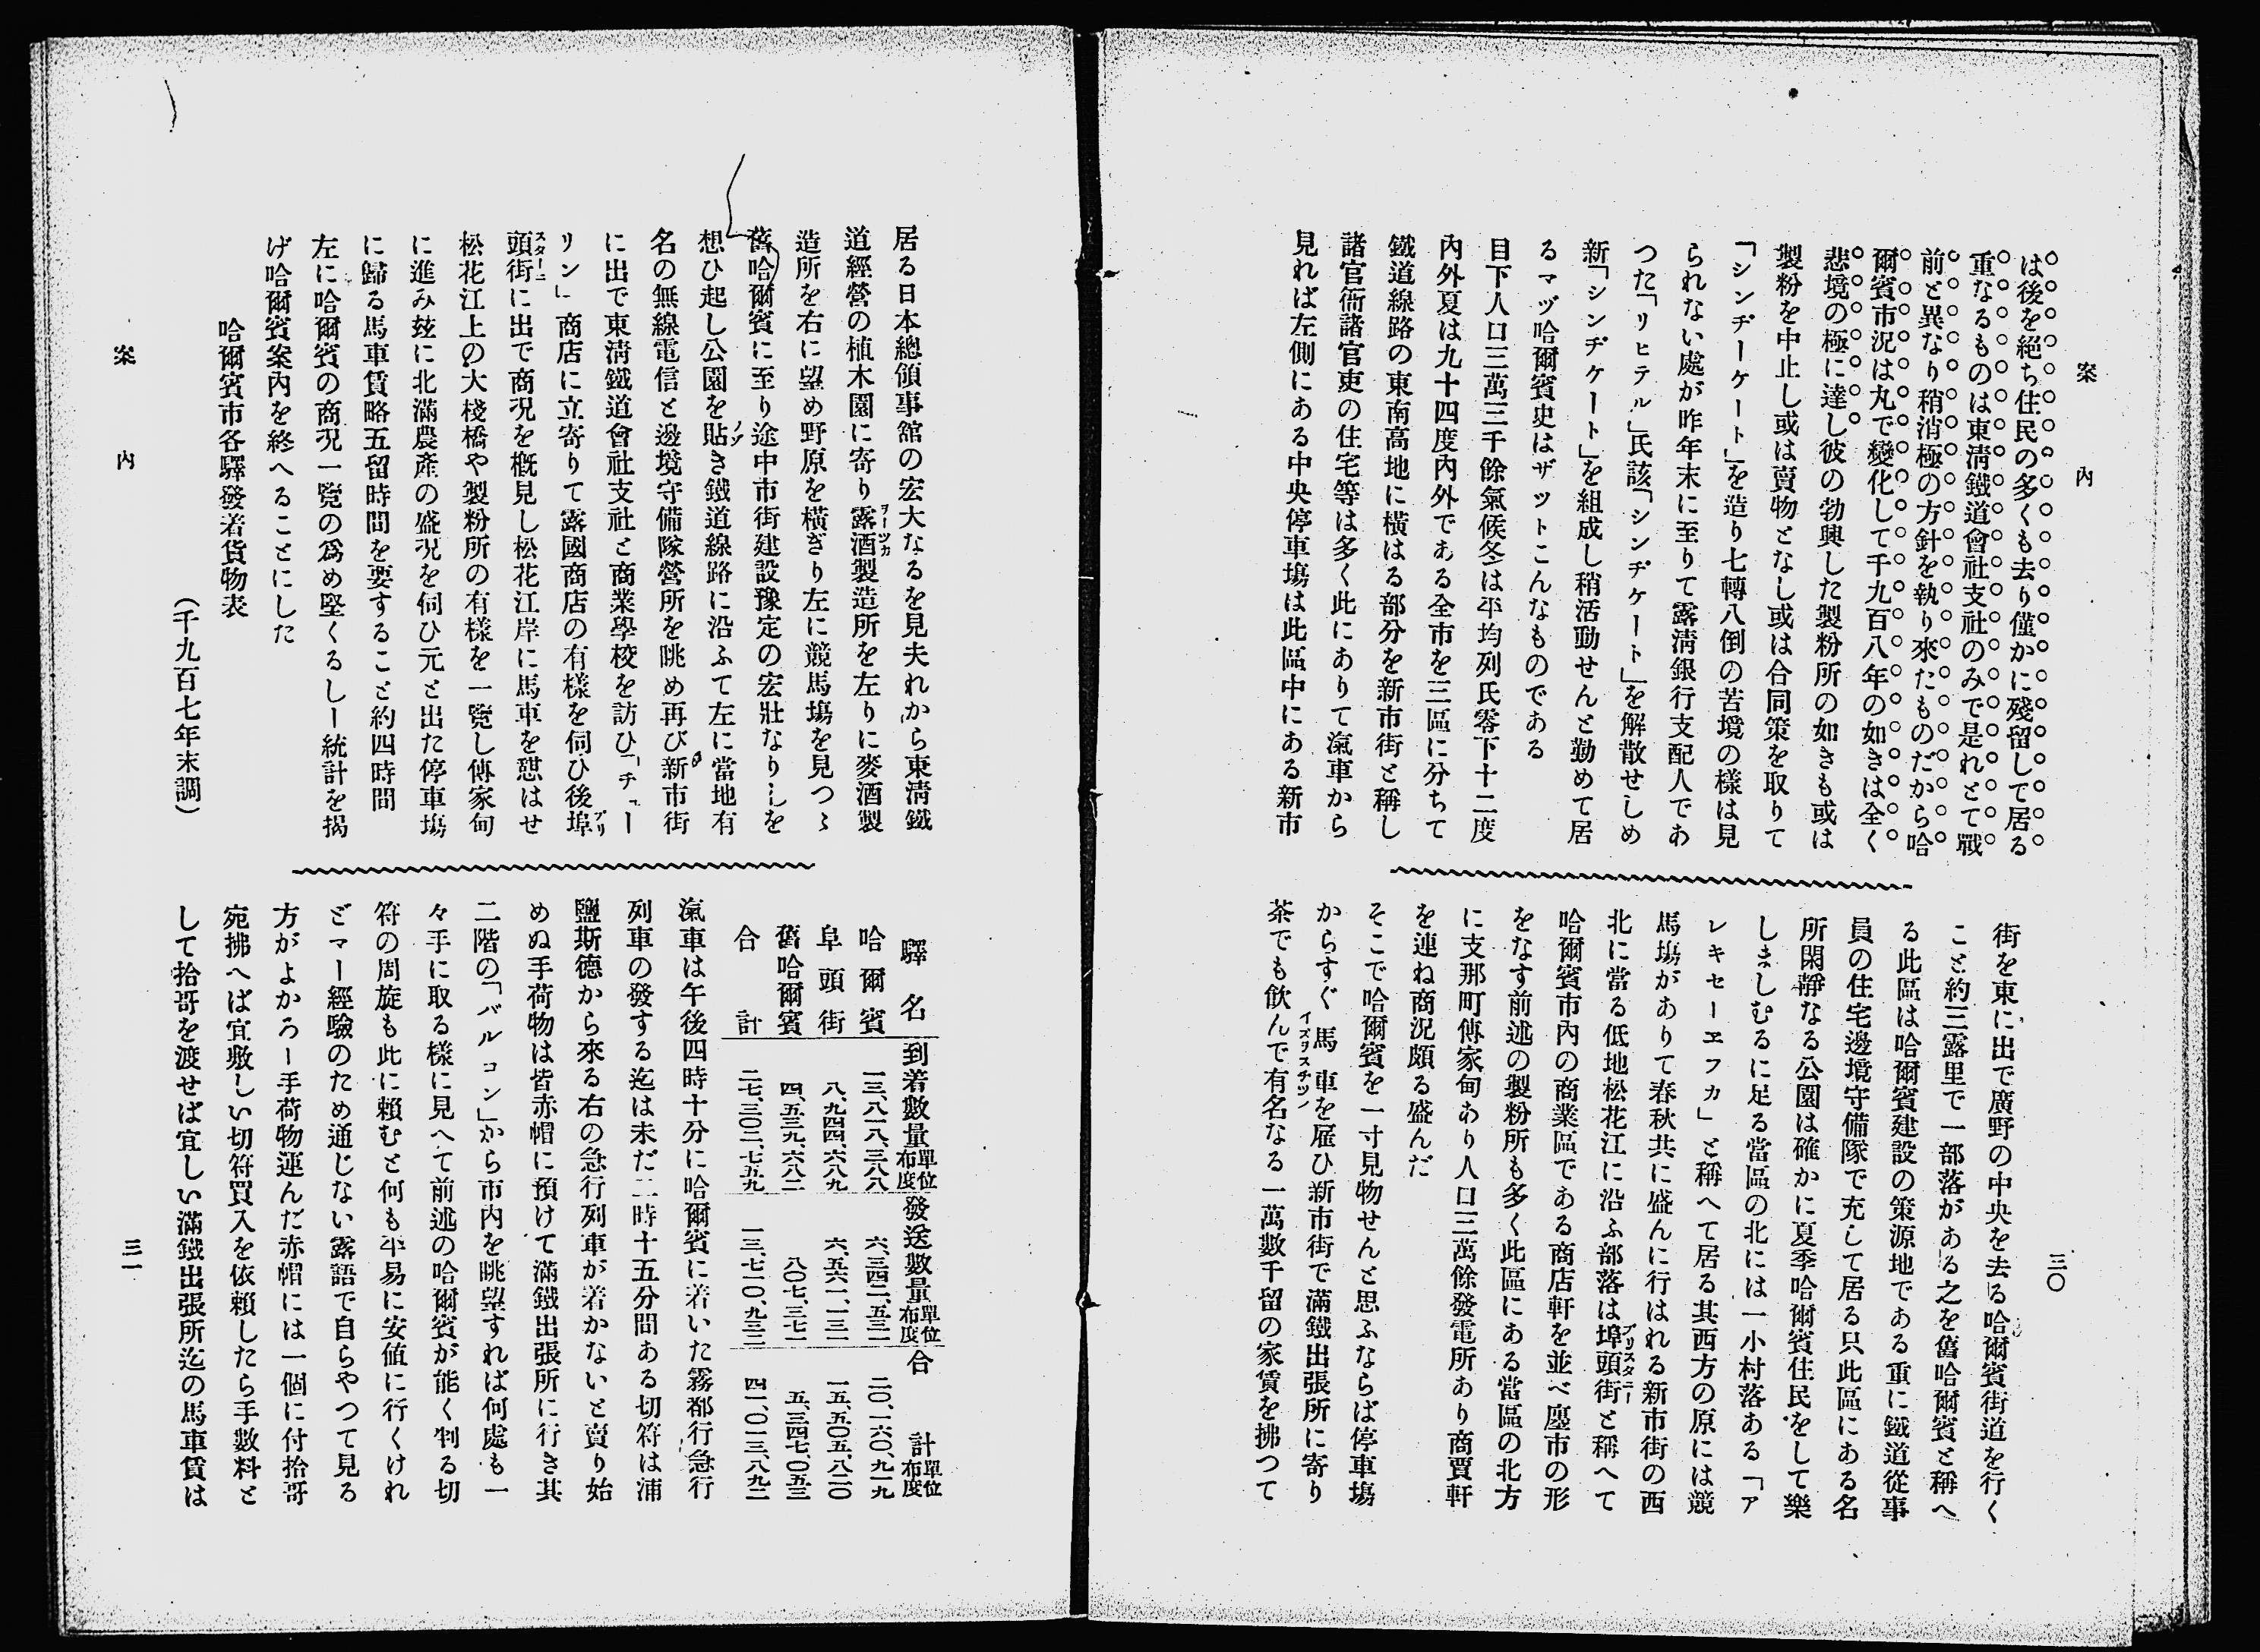 案內
三〇
は後を絕ち住民の多くも去り僅かに殘留して居る
重なるものは東淸鐵道會社支社のみで是れとて戰
前と異なり稍消極の方針を執り來たものだから哈
爾賓市況は丸で變化して千九百八年の如きは全く
悲境の極に達し彼の勃興した製粉所の如きも或は
製粉を中止し或は賣物となし或は合同策を取りて
「シンヂーケート」を造り七轉八倒の苦境の樣は見
られない處が昨年末に至りて露淸銀行支配人であ
つた「リヒテル」氏該「シンヂケート」を解散せしめ
新「シンヂケート」を組成し稍活動せんと勤めて居
るマヅ哈爾賓史はザツトこんなものである
目下人口三萬三千餘氣候冬は平均列氏零下十二度
內外夏は九十四度內外である全市を三區に分ちて
鐵道線路の東南高地に橫はる部分を新市街と稱し
諸官衙諸官吏の住宅等は多く此にありて滊車から
見れば左側にある中央停車塲は此區中にある新市
街を東に出で廣野の中央を去る哈爾賓街道を行く
こと約三露里で一部落がある之を舊哈爾賓と稱へ
る此區は哈爾賓建設の策源地である重に鐵道從事
員の住宅邊境守備隊で充して居る只此區にある名
所閑靜なる公園は確かに夏季哈爾賓住民をして樂
しましむるに足る當區の北には一小村落ある「ア
レキセーヱフカ」と稱へて居る其西方の原には競
馬塲がありて春秋共に盛んに行はれる新市街の西
北に當る低地松花江に沿ふ部落は埠頭街プリスターニーと稱へて
哈爾賓市內の商業區である商店軒を並べ廛市の形
をなす前述の製粉所も多く此區にある當區の北方
に支那町傅家甸あり人口三萬餘發電所あり商賈軒
を連ね商況頗る盛んだ
そこで哈爾賓を一寸見物せんと思ふならば停車塲
からすぐ馬車イズヲスチツシを雇ひ新市街で滿鐵出張所に寄り
茶でも飮んで有名なる一萬數千留の家賃を拂つて
居る日本總領事舘の宏大なるを見夫れから東淸鐵
道經營の植木園に寄り露酒ヲーツカ製造所を左りに麥酒製
造所を右に望め野原を橫ぎり左に競馬塲を見つゝ
舊哈爾賓に至り途中市街建設豫定の宏壯なりしを
想ひ起し公園を貼ノゾき鐵道線路に沿ふて左に當地有
名の無線電信と邊境守備隊營所を眺め再び新市街
に出で東淸鐵道會社支社と商業學校を訪ひ「チユー
リン」商店に立寄りて露國商店の有樣を伺ひ後埠プリ
頭街スターニーに出で商況を槪見し松花江岸に馬車を憇はせ
松花江上の大棧橋や製粉所の有樣を一覽し傅家甸
に進み玆に北滿農產の盛況を伺ひ元と出た停車塲
に歸る馬車賃略五留時間を要すること約四時間
左に哈爾賓の商況一覽の爲め堅くるしー統計を揭
げ哈爾賓案內を終へることにした
哈爾賓市各驛發着貨物表
（千九百七年末調）
驛名 到着數量單位布度 發送數量單位布度 合計單位布度
哈爾賓 一三、八一八、三八八 六、三四二、五三一 二〇、一六〇、九一九
阜頭街 八、九四四、六八九 六、五六一、一三一 一五、五〇五、八二〇
舊哈爾賓 四、五三九、六八二 八〇七、三七一 五、三四七、〇五三
合計 二七、三〇二、七五九 一三、七一〇、九三三 四一、〇一三、八九二
滊車は午後四時十分に哈爾賓に着いた霧都行急行
列車の發する迄は未だ二時十五分間ある切符は浦
鹽斯德から來る右の急行列車が着かないと賣り始
めぬ手荷物は皆赤帽に預けて滿鐵出張所に行き其
二階の「バルコン」から市內を眺望すれば何處も一
々手に取る樣に見へて前述の哈爾賓が能く判る切
符の周旋も此に賴むと何も平易に安値に行くけれ
どマー經驗のため通じない露語で自らやつて見る
方がよかろー手荷物運んだ赤帽には一個に付拾哥
宛拂へば宜敷しい切符買入を依賴したら手數料と
して拾哥を渡せば宜しい滿鐵出張所迄の馬車賃は
案內
三一